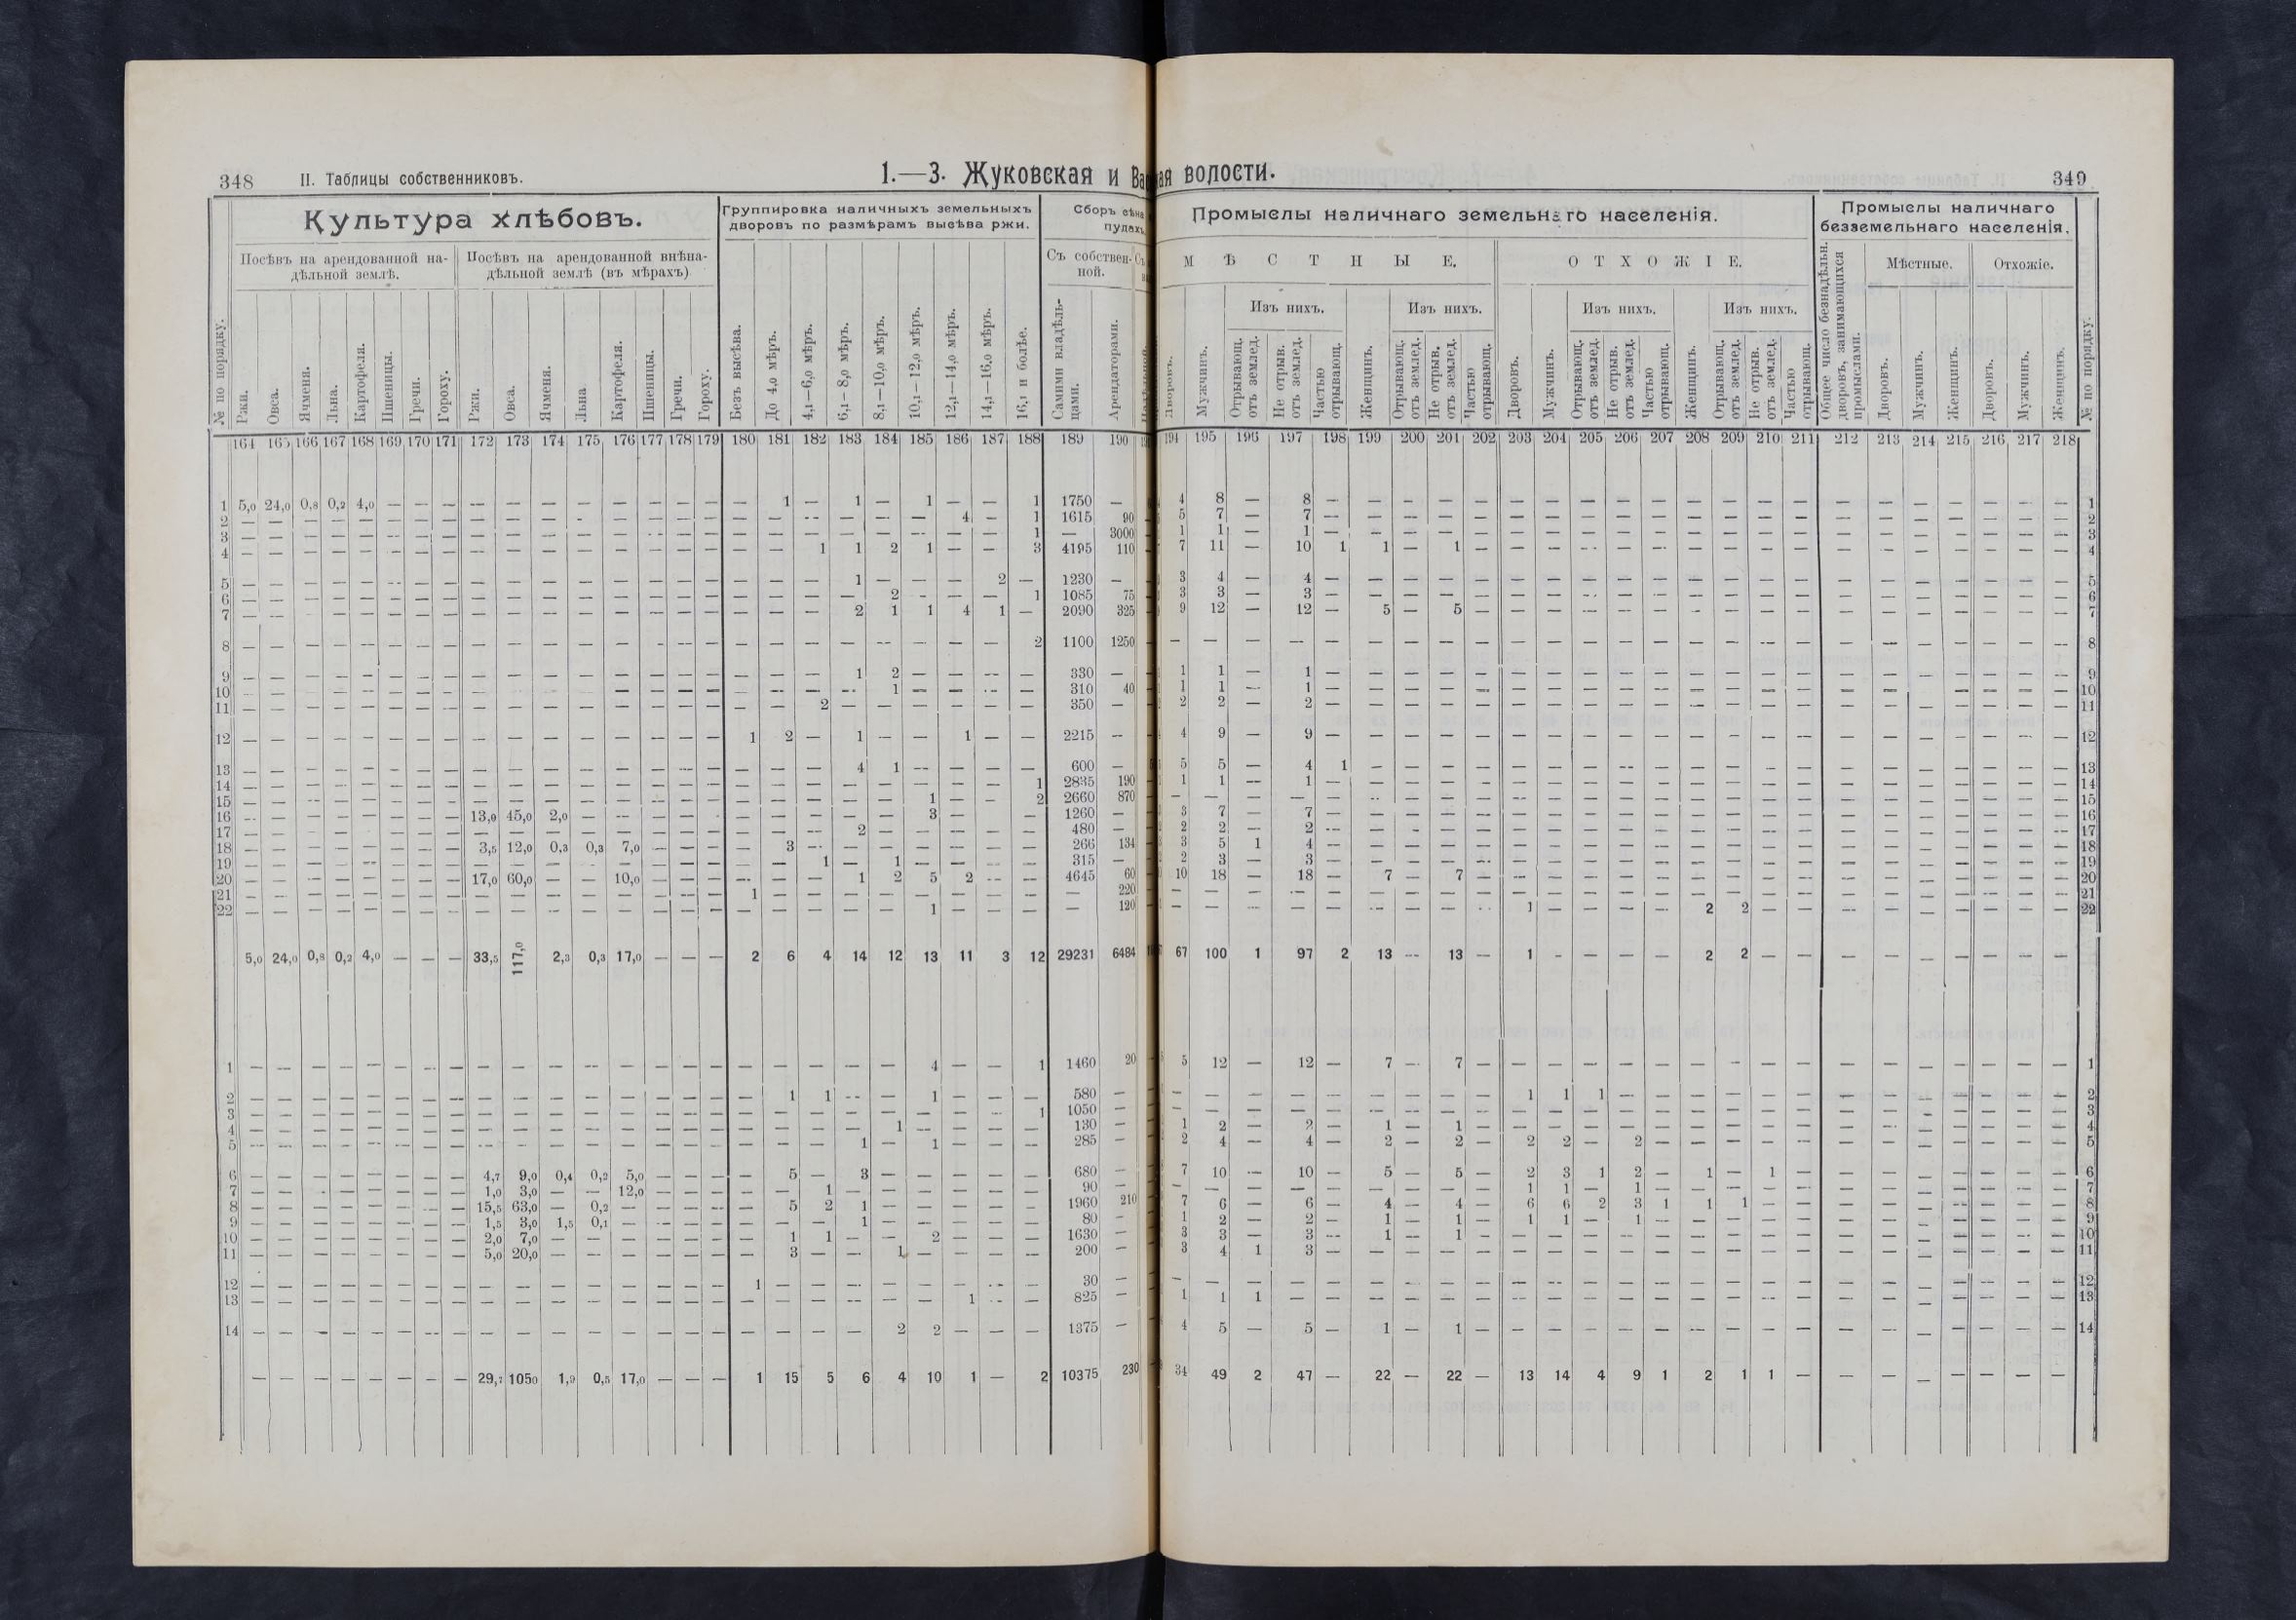 348 II. Таблицы собственниковъ. 1.—3. Жуковская и Ва
Культура хлѣбовъ.
Группировка наличныхъ земельныхъ
дворовъ по размѣрамъ высѣва ржи.
Сборъ сѣна
пудахъ
Посѣвъ на арендованной на-
дѣльной землѣ.
Посѣвъ на арендованной внѣна-
дѣльной землѣ (въ мѣрахъ)
Съ собствен-
ной.
№ по порядку. Ржи. Овса. Ячменя. Льна. Картофеля. Пшеницы. Гречи. Гороху. Ржи. Овса. Ячменя. Льна Картофеля. Пшеницы. Гречи. Гороху. Безъ высѣва. До 4,0 мѣръ. 4,1—6,0 мѣръ. 6,1—8,0 мѣръ. 8,1—10,0 мѣръ. 10,1—12,0 мѣръ. 12,1—14,0 мѣръ. 14,1—16,0 мѣръ. 16,1 и болѣе. Самими владѣль-
цами. Арендаторами.
164 165 166 167 168 169 170 171 172 173 174 175 176 177 178 179 180 181 182 183 184 185 186 187 188 189 190
1 5,0 24,0 0,8 0,2 4,0 — — — — — — — — — — — — 1 — 1 — 1 — — 1 1750 —
2 — — — — — — — — — — — — — — — — — — — — — — 4 — 1 1615 90
3 — — — — — — — — — — — — — — — — — — — — — — — — 1 — 3000
4 — — — — — — — — — — — — — — — — — — 1 1 2 1 — — 3 4195 110
5 — — — — — — — — — — — — — — — — — — — 1 — — — 2 — 1230 —
6 — — — — — — — — — — — — — — — — — — — — 2 — — — 1 1085 75
7 — — — — — — — — — — — — — — — — — — — 2 1 1 4 1 — 2090 325
8 — — — — — — — — — — — — — — — — — — — — — — — — 2 1100 1250
9 — — — — — — — — — — — — — — — — — — — 1 2 — — — — 330 —
10 — — — — — — — — — — — — — — — — — — — — 1 — — — — 310 40
11 — — — — — — — — — — — — — — — — — — 2 — — — — — — 350 —
12 — — — — — — — — — — — — — — — — 1 2 — 1 — — 1 — — 2215 —
13 — — — — — — — — — — — — — — — — — — — 4 1 — — — — 600 —
14 — — — — — — — — — — — — — — — — — — — — — — — — 1 2835 190
15 — — — — — — — — — — — — — — — — — — — — — 1 — — 2 2660 870
16 — — — — — — — — 13,0 45,0 2,0 — — — — — — — — — — 3 — — — 1260 —
17 — — — — — — — — — — — — — — — — — — — 2 — — — — — 480 —
18 — — — — — — — — 3,5 12,0 0,3 0,3 7,0 — — — — 3 — — — — — — — 266 134
19 — — — — — — — — — — — — — — — — — — 1 — 1 — — — — 315 —
20 — — — — — — — — 17,0 60,0 — — 10,0 — — — — — — 1 2 5 2 — — 4645 60
21 — — — — — — — — — — — — — — — — 1 — — — — — — — — — 220
22 — — — — — — — — — — — — — — — — — — — — — 1 — — — — 120
5,0 24,0 0,8 0,2 4,0 — — — 33,5 117,0 2,3 0,3 17,0 — — — 2 6 4 14 12 13 11 3 12 29231 6484
1 — — — — — — — — — — — — — — — — — — — — — 4 — — 1 1460 20
2 — — — — — — — — — — — — — — — — — 1 1 — — 1 — — — 580 —
3 — — — — — — — — — — — — — — — — — — — — — — — — 1 1050 —
4 — — — — — — — — — — — — — — — — — — — — 1 — — — — 130 —
5 — — — — — — — — — — — — — — — — — — — 1 — 1 — — — 285 —
6 — — — — — — — — 4,7 9,0 0,4 0,2 5,0 — — — — 5 — 3 — — — — — 680 —
7 — — — — — — — — 1,0 3,0 — — 12,0 — — — — — 1 — — — — — — 90 —
8 — — — — — — — — 15,5 63,0 — 0,2 — — — — — 5 2 1 — — — — — 1960 210
9 — — — — — — — — 1,5 3,0 1,5 0,1 — — — — — — — 1 — — — — — 80 —
10 — — — — — — — — 2,0 7,0 — — — — — — — 1 1 — — 2 — — — 1630 —
11 — — — — — — — — 5,0 20,0 — — — — — — — 3 — — 1 — — — — 200 —
12 — — — — — — — — — — — — — — — — 1 — — — — — — — — 30 —
13 — — — — — — — — — — — — — — — — — — — — — — 1 — — 825 —
14 — — — — — — — — — — — — — — — — — — — — 2 2 — — — 1375 —
— — — — — — — — 29,7 1050 1,9 0,5 17,0 — — — 1 15 5 6 4 10 1 — 2 10375 230
ая волости. 349
Промыслы наличнаго земельнаго населенія.
Промыслы наличнаго
безземельнаго населенія.
МѢСТНЫЕ. ОТХОЖІЕ. Мѣстные. Отхожіе.
Изъ нихъ. Изъ нихъ. Изъ нихъ. Изъ нихъ.
Дворовъ. Мужчинъ. Отрывающ.
отъ землед. Не отрыв.
отъ землед. Частью
отрывающ. Женщинъ. Отрывающ.
отъ землед. Не отрыв.
отъ землед. Частью
отрывающ. Дворовъ. Мужчинъ. Отрывающ.
отъ землед. Не отрыв.
отъ землед. Частью
отрывающ. Женщинъ. Отрывающ.
отъ землед. Не отрыв.
отъ землед. Частью
отрывающ. Общее число безнадѣльн.
дворовъ, занимающихся
промыслами. Дворовъ. Мужчинъ. Женщинъ. Дворовъ. Мужчинъ. Женщинъ. № по порядку.
194 195 196 197 198 199 200 201 202 203 204 205 206 207 208 209 210 211 212 213 214 215 216 217 218
4 8 — 8 — — — — — — — — — — — — — — — — — — — — — 1
5 7 — 7 — — — — — — — — — — — — — — — — — — — — — 2
1 1 — 1 — — — — — — — — — — — — — — — — — — — — — 3
7 11 — 10 1 1 — 1 — — — — — — — — — — — — — — — — — 4
3 4 — 4 — — — — — — — — — — — — — — — — — — — — — 5
3 3 — 3 — — — — — — — — — — — — — — — — — — — — — 6
9 12 — 12 — 5 — 5 — — — — — — — — — — — — — — — — — 7
— — — — — — — — — — — — — — — — — — — — — — — — — 8
1 1 — 1 — — — — — — — — — — — — — — — — — — — — — 9
1 1 — 1 — — — — — — — — — — — — — — — — — — — — — 10
2 2 — 2 — — — — — — — — — — — — — — — — — — — — — 11
4 9 — 9 — — — — — — — — — — — — — — — — — — — — — 12
5 5 — 4 1 — — — — — — — — — — — — — — — — — — — — 13
1 1 — 1 — — — — — — — — — — — — — — — — — — — — — 14
— — — — — — — — — — — — — — — — — — — — — — — — — 15
3 7 — 7 — — — — — — — — — — — — — — — — — — — — — 16
2 2 — 2 — — — — — — — — — — — — — — — — — — — — — 17
3 5 1 4 — — — — — — — — — — — — — — — — — — — — — 18
2 3 — 3 — — — — — — — — — — — — — — — — — — — — — 19
10 18 — 18 — 7 — 7 — — — — — — — — — — — — — — — — — 20
— — — — — — — — — — — — — — — — — — — — — — — — — 21
— — — — — — — — — 1 — — — — 2 2 — — — — — — — — — 22
67 100 1 97 2 13 — 13 — 1 — — — — 2 2 — — — — — — — — —
5 12 — 12 — 7 — 7 — — — — — — — — — — — — — — — — — 1
— — — — — — — — — 1 1 1 — — — — — — — — — — — — — 2
— — — — — — — — — — — — — — — — — — — — — — — — — 3
1 2 — 2 — 1 — 1 — — — — — — — — — — — — — — — — — 4
2 4 — 4 — 2 — 2 — 2 2 — 2 — — — — — — — — — — — — 5
7 10 — 10 — 5 — 5 — 2 3 1 2 — 1 — 1 — — — — — — — — 6
— — — — — — — — — 1 1 — 1 — — — — — — — — — — — — 7
7 6 — 6 — 4 — 4 — 6 6 2 3 1 1 1 — — — — — — — — — 8
1 2 — 2 — 1 — 1 — 1 1 — 1 — — — — — — — — — — — — 9
3 3 — 3 — 1 — 1 — — — — — — — — — — — — — — — — — 10
3 4 1 3 — — — — — — — — — — — — — — — — — — — — — 11
— — — — — — — — — — — — — — — — — — — — — — — — — 12
1 1 1 — — — — — — — — — — — — — — — — — — — — — — 13
4 5 — 5 — 1 — 1 — — — — — — — — — — — — — — — — — 14
34 49 2 47 — 22 — 22 — 13 14 4 9 1 2 1 1 — — — — — — — —